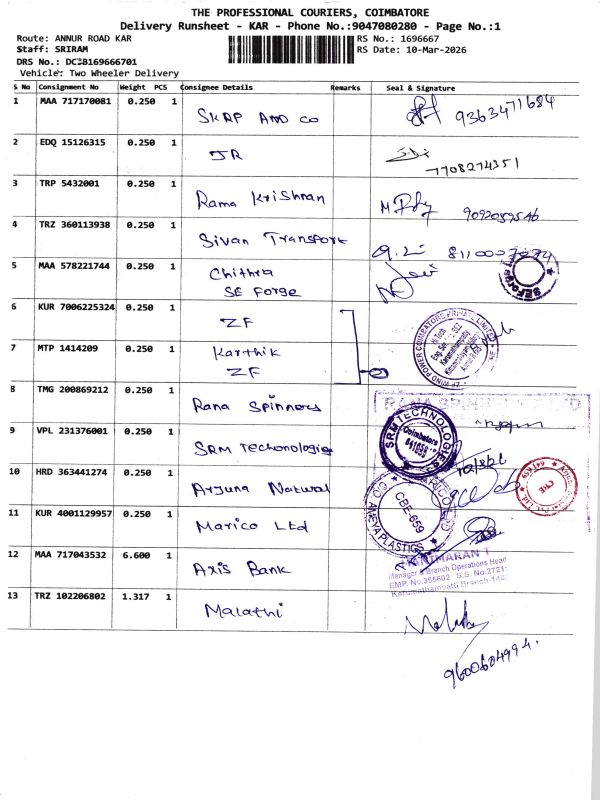 THE PROFESSIONAL COURIERS, COIMBATORE
Delivery Runsheet - KAR - Phone No.:9047080280 - Page No.:1
Route: ANNUR ROAD KAR
RS No.: 1696667
Staff: SRIRAM
RS Date: 10-Mar-2026
DRS No.: DC3B169666701
Vehicle: Two Wheeler Delivery
S No Consignment No Weight PCS Consignee Details Remarks Seal & Signature
1 MAA 717170081 0.250 1 SKRP AND CO 9363471684
2 EDQ 15126315 0.250 1 JR 7708274351
3 TRP 5432001 0.250 1 Rama Krishnan 9092059546
4 TRZ 360113938 0.250 1 Sivan Transport
5 MAA 578221744 0.250 1 Chithra
SE Forge
6 KUR 7006225324 0.250 1 ZF
7 MTP 1414209 0.250 1 Karthik
ZF
8 TMG 200869212 0.250 1 Rana Spinners
9 VPL 231376001 0.250 1 SRM Techonologies
SRM TECHNOLOGIES
Coimbatore
10 HRD 363441274 0.250 1 Arjuna Natural
11 KUR 4001129957 0.250 1 Marico Ltd
CBE-659
AMEYA PLASTICS
12 MAA 717043532 6.600 1 Axis Bank
Manager & Branch Operations Head
EMP. No.355602 S.S. No.2721
Karumathampatti Branch-144
13 TRZ 102206802 1.317 1 Malathi
9600604994